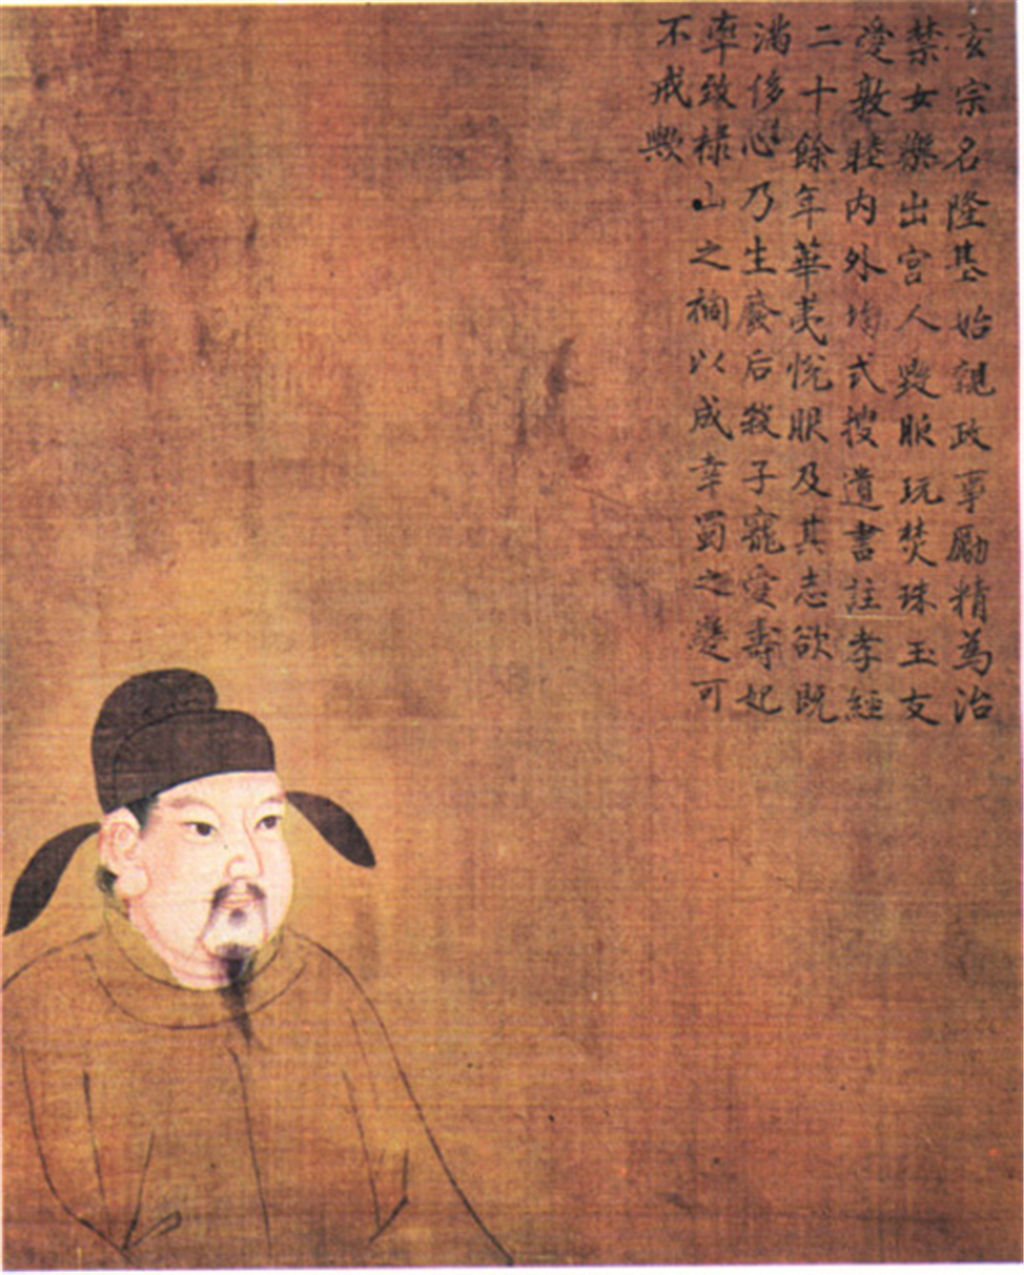 玄宗名隆基始親政事勵精為治
禁女樂出宮人毀服玩焚珠玉友
愛敦睦內外均式搜遺書註孝經
二十餘年華夷悅服及其志欲既
滿侈心乃生廢后殺子寵愛壽妃
率致祿山之禍以成幸蜀之變可
不戒歟